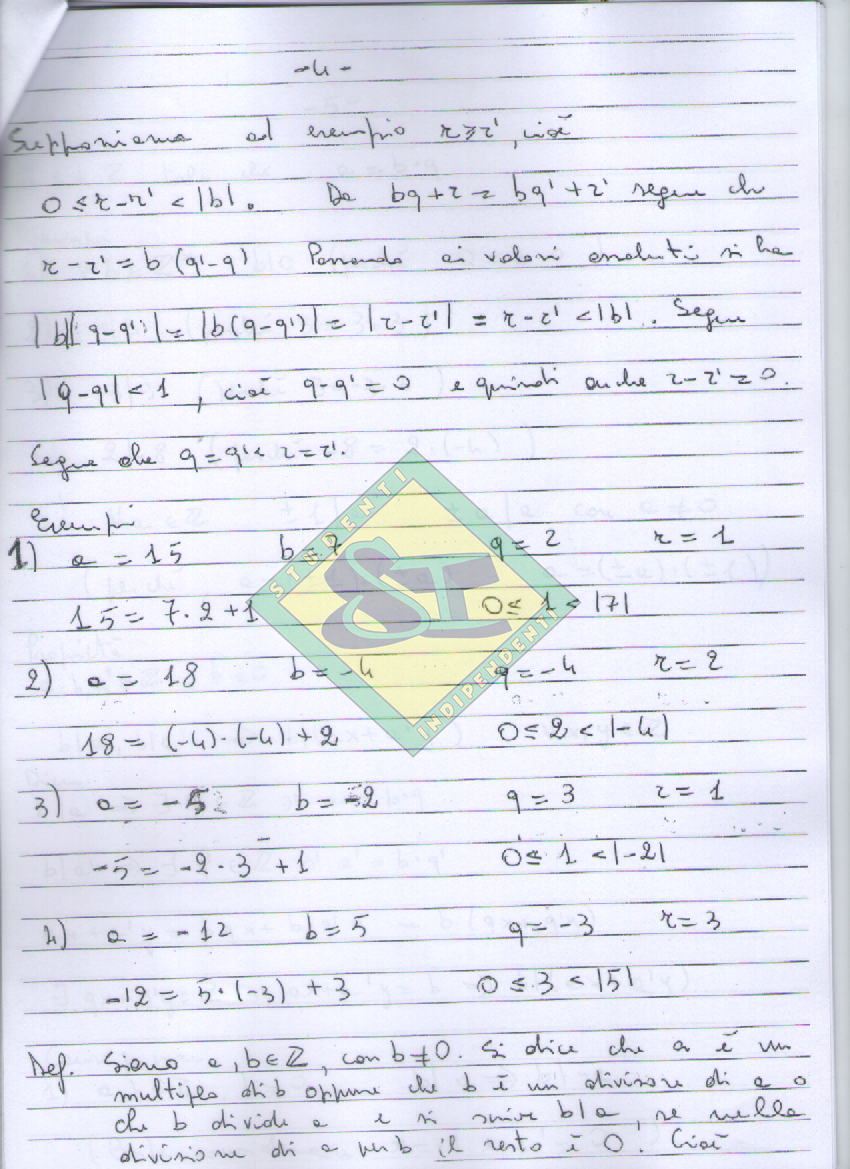 -4-
Supponiamo ad esempio r⩾r', cioè
0 ≤ r-r' < |b|. Da bq+r = bq'+r' segue che
r-r' = b(q'-q) Passando ai valori assoluti si ha
|b||q-q'| = |b(q-q')| = |r-r'| = r-r' < |b|. Segue
|q-q'| < 1, cioè q-q' = 0 e quindi anche r-r' = 0.
Segue che q=q' e r=r'.
Esempi
1) a = 15 b = 7 q = 2 r = 1
15 = 7·2+1 0 ≤ 1 < |7|
2) a = 18 b = -4 q = -4 r = 2
18 = (-4)·(-4)+2 0 ≤ 2 < |-4|
3) a = -5 b = -2 q = 3 r = 1
-5 = -2·3+1 0 ≤ 1 < |-2|
4) a = -12 b = 5 q = -3 r = 3
-12 = 5·(-3)+3 0 ≤ 3 < |5|
Def. Siano a, b ∈ ℤ, con b ≠ 0. Si dice che a è un
multiplo di b oppure che b è un divisore di a o
che b divide a e si scrive b|a, se nella
divisione di a per b il resto è 0. Cioè
STUDENTI
SI
INDIPENDENTI